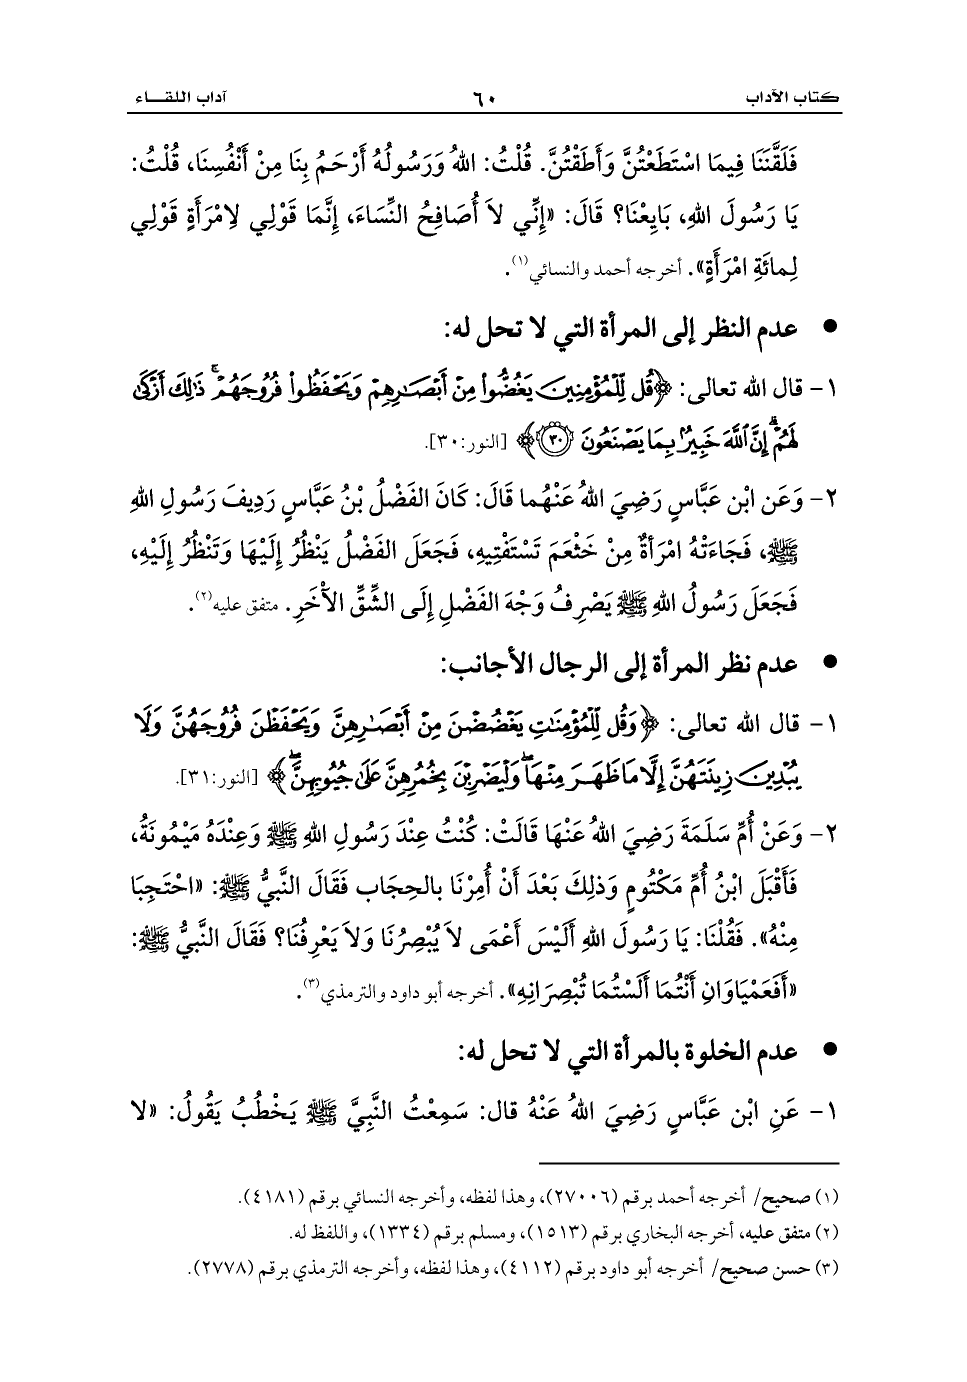 كتاب الآداب ٦٠ آداب اللقـــاء
فَلَقَّنَنَا فِيمَا اسْتَطَعْتُنَّ وَأَطَقْتُنَّ. قُلْتُ: اللهُ وَرَسُولُهُ أَرْحَمُ بِنَا مِنْ أَنْفُسِنَا، قُلْتُ:
يَا رَسُولَ اللهِ، بَايِعْنَا؟ قَالَ: «إِنِّي لاَ أُصَافِحُ النِّسَاءَ، إِنَّمَا قَوْلِي لِامْرَأَةٍ قَوْلِي
لِمائَةِ امْرَأَةٍ». أخرجه أحمد والنسائي(١).
● عدم النظر إلى المرأة التي لا تحل له:
١- قال الله تعالى: ﴿قُل لِّلْمُؤْمِنِينَ يَغُضُّوا۟ مِنْ أَبْصَـٰرِهِمْ وَيَحْفَظُوا۟ فُرُوجَهُمْ ۚ ذَٰلِكَ أَزْكَىٰ
لَهُمْ ۗ إِنَّ ٱللَّهَ خَبِيرٌۢ بِمَا يَصْنَعُونَ ﴿٣٠﴾﴾ [النور:٣٠].
٢- وَعَن ابْن عَبَّاسٍ رَضِيَ اللهُ عَنْهُما قَالَ: كَانَ الفَضْلُ بْنُ عَبَّاسٍ رَدِيفَ رَسُولِ اللهِ
ﷺ، فَجَاءَتْهُ امْرَأةٌ مِنْ خَثْعَمَ تَسْتَفْتِيهِ، فَجَعَلَ الفَضْلُ يَنْظُرُ إِلَيْهَا وَتَنْظُرُ إِلَيْهِ،
فَجَعَلَ رَسُولُ اللهِ ﷺ يَصْرِفُ وَجْهَ الفَضْلِ إِلَى الشِّقِّ الآخَرِ. متفق عليه(٢).
● عدم نظر المرأة إلى الرجال الأجانب:
١- قال الله تعالى: ﴿وَقُل لِّلْمُؤْمِنَـٰتِ يَغْضُضْنَ مِنْ أَبْصَـٰرِهِنَّ وَيَحْفَظْنَ فُرُوجَهُنَّ وَلَا
يُبْدِينَ زِينَتَهُنَّ إِلَّا مَا ظَهَرَ مِنْهَا ۖ وَلْيَضْرِبْنَ بِخُمُرِهِنَّ عَلَىٰ جُيُوبِهِنَّ ۖ﴾ [النور:٣١].
٢- وَعَنْ أُمِّ سَلَمَةَ رَضِيَ اللهُ عَنْهَا قَالَتْ: كُنْتُ عِنْدَ رَسُولِ اللهِ ﷺ وَعِنْدَهُ مَيْمُونَةُ،
فَأَقْبَلَ ابْنُ أُمِّ مَكْتُومٍ وَذَلِكَ بَعْدَ أَنْ أُمِرْنَا بالحِجَاب فَقَالَ النَّبيُّ ﷺ: «احْتَجِبَا
مِنْهُ». فَقُلْنَا: يَا رَسُولَ اللهِ أَلَيْسَ أَعْمَى لاَ يُبْصِرُنَا وَلاَ يَعْرِفُنَا؟ فَقَالَ النَّبيُّ ﷺ:
«أَفَعَمْيَاوَانِ أَنْتُمَا أَلَسْتُمَا تُبْصِرَانِهِ». أخرجه أبو داود والترمذي(٣).
● عدم الخلوة بالمرأة التي لا تحل له:
١- عَنِ ابْن عَبَّاسٍ رَضِيَ اللهُ عَنْهُ قال: سَمِعْتُ النَّبِيَّ ﷺ يَخْطُبُ يَقُولُ: «لا
(١) صحيح/ أخرجه أحمد برقم (٢٧٠٠٦)، وهذا لفظه، وأخرجه النسائي برقم (٤١٨١).
(٢) متفق عليه، أخرجه البخاري برقم (١٥١٣)، ومسلم برقم (١٣٣٤)، واللفظ له.
(٣) حسن صحيح/ أخرجه أبو داود برقم (٤١١٢)، وهذا لفظه، وأخرجه الترمذي برقم (٢٧٧٨).